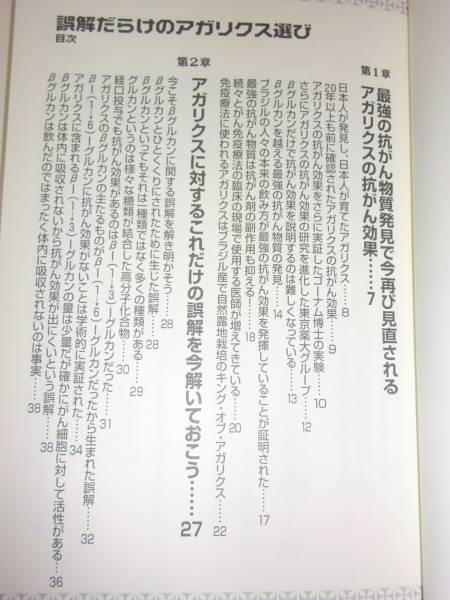 誤解だらけのアガリクス選び
目次
第1章
最強の抗がん物質発見で今再び見直される
アガリクスの抗がん効果……7
日本人が発見し、日本人が育てたアガリクス……8
20年以上も前に確認されたアガリクスの抗がん効果……9
アガリクスの抗がん効果をさらに実証したゴーナム博士の実験……10
さらにアガリクスの抗がん効果の研究を進化した東京薬大グループ……12
βグルカンだけで抗がん効果を説明するのは難しくなっている……13
βグルカンを越える最強の抗がん物質の発見……14
ブラジルの人々の本来の飲み方が最強の抗がん効果を発揮していることが証明された……17
最強の抗がん物質は抗がん剤の副作用も抑える……18
続々とがん免疫療法の臨床の現場で使用する医師が増えてきている……20
免疫療法に使われるアガリクスはブラジル産で自然露地栽培のキング・オブ・アガリクス……22
第2章
アガリクスに対するこれだけの誤解を今解いておこう……27
今こそβグルカンに関する誤解を解き明かそう……28
βグルカンとひとくくりにされたために生じた誤解……28
βグルカンといってもそれは一種類ではなく多くの種類がある……29
グルカンというのは様々な糖類が結合した高分子化合物……30
経口投与でも抗がん効果があるのはβ−(1→3)−グルカンだった……31
アガリクスのβグルカンの主たるものがβ−(1→6)−グルカンだったから生まれた誤解……32
β−(1→6)−グルカンに抗がん効果がないことは学術的に実証された……34
アガリクスに含まれるβ−(1→3)−グルカンの量は少量だが確かにがん細胞に対して活性がある……36
βグルカンは体内に吸収されないから抗がん効果が出にくいという誤解……38
βグルカンは飲んだのではまったく体内に吸収されないのは事実……38